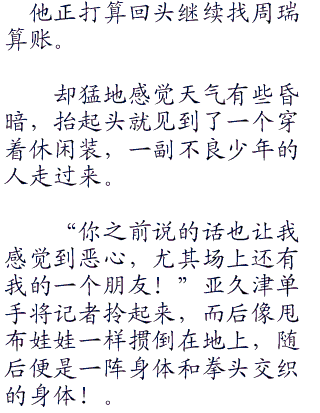 他正打算回头继续找周瑞
算账。
却猛地感觉天气有些昏
暗，抬起头就见到了一个穿
着休闲装，一副不良少年的
人走过来。
“你之前说的话也让我
感觉到恶心，尤其场上还有
我的一个朋友！”亚久津单
手将记者拎起来，而后像甩
布娃娃一样掼倒在地上，随
后便是一阵身体和拳头交织
的身体！。